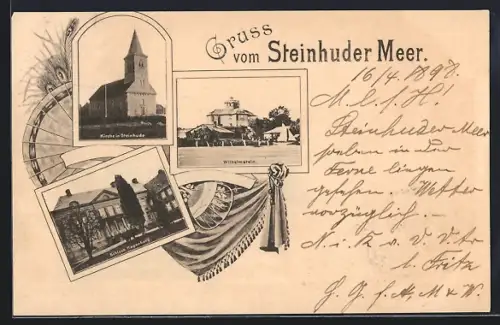 Gruss
vom Steinhuder Meer.
Kirche in Steinhude
Wilhelmstein.
Schloss Hagenburg
16/4. 1898.
M. l. f. H!
Steinhuder Meer
soeben in der
Ferne liegen
gesehen. Wetter
vorzüglich.
N. i. K. a. d. V. Dr
l. Fritz
H. G. f. A, M & W.